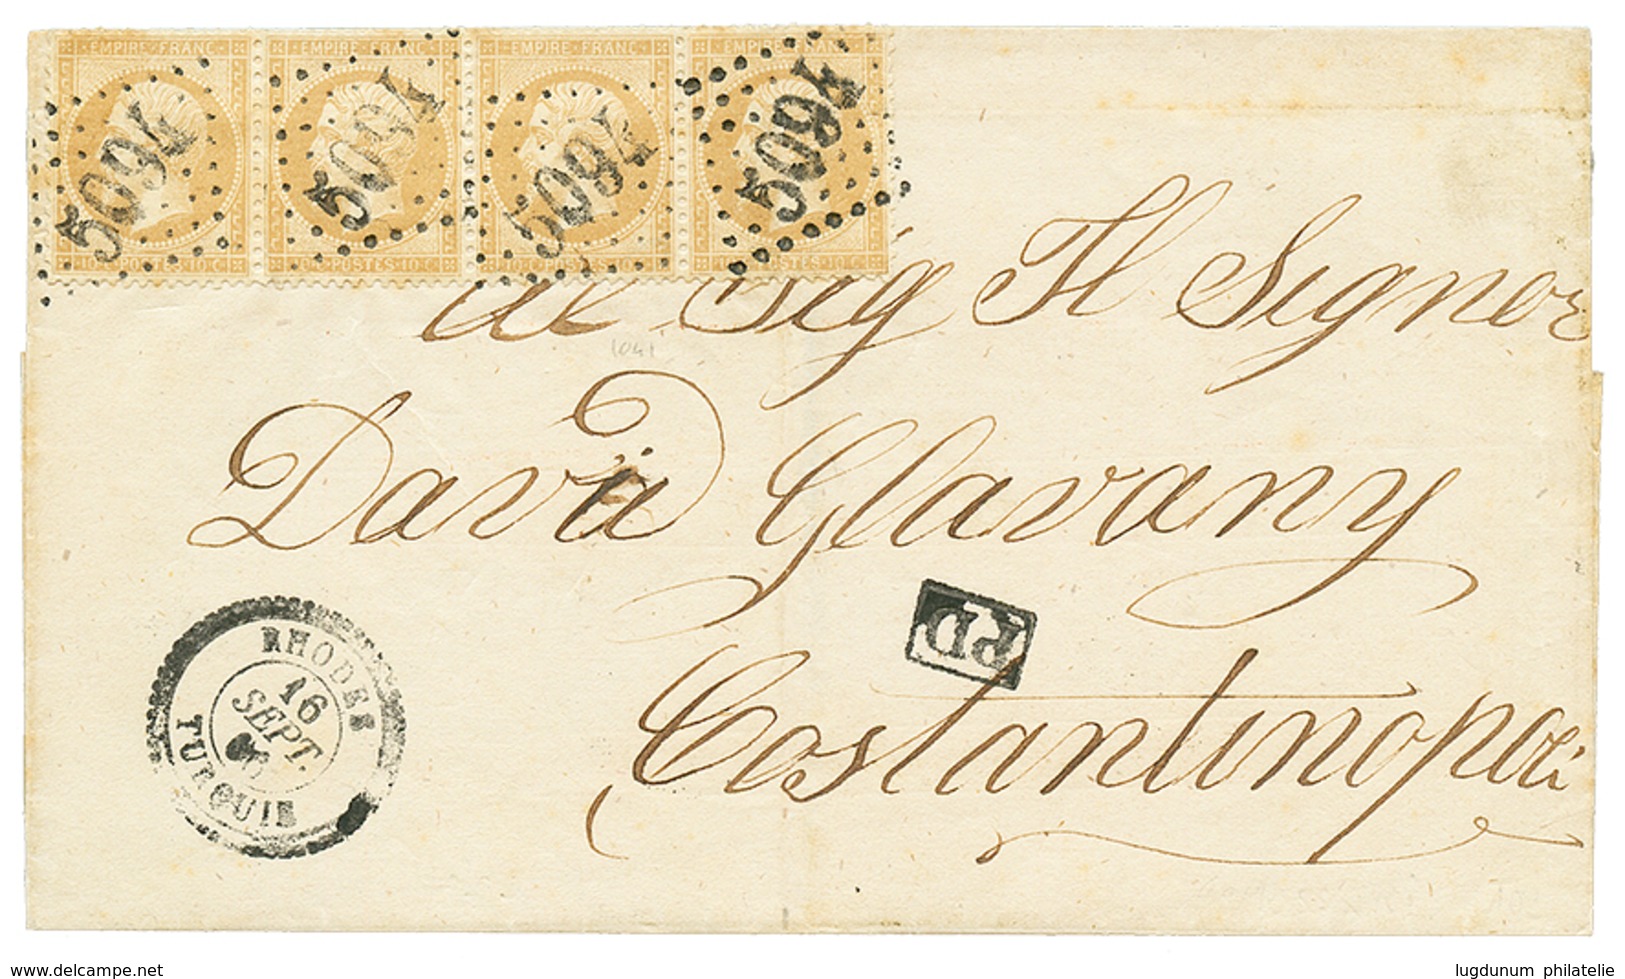 EMPIRE FRANC EMPIRE FRANC EMPIRE FRANC EMPIRE FRANC
5094 5094 5094 5094
POSTES 10 C POSTES 10 C POSTES 10 C POSTES 10 C
Sig Il Signor
1041
David Glavany
PD
Costantinopoli
RHODES
16
SEPT.
TURQUIE
www.delcampe.net
lugdunum philatelie